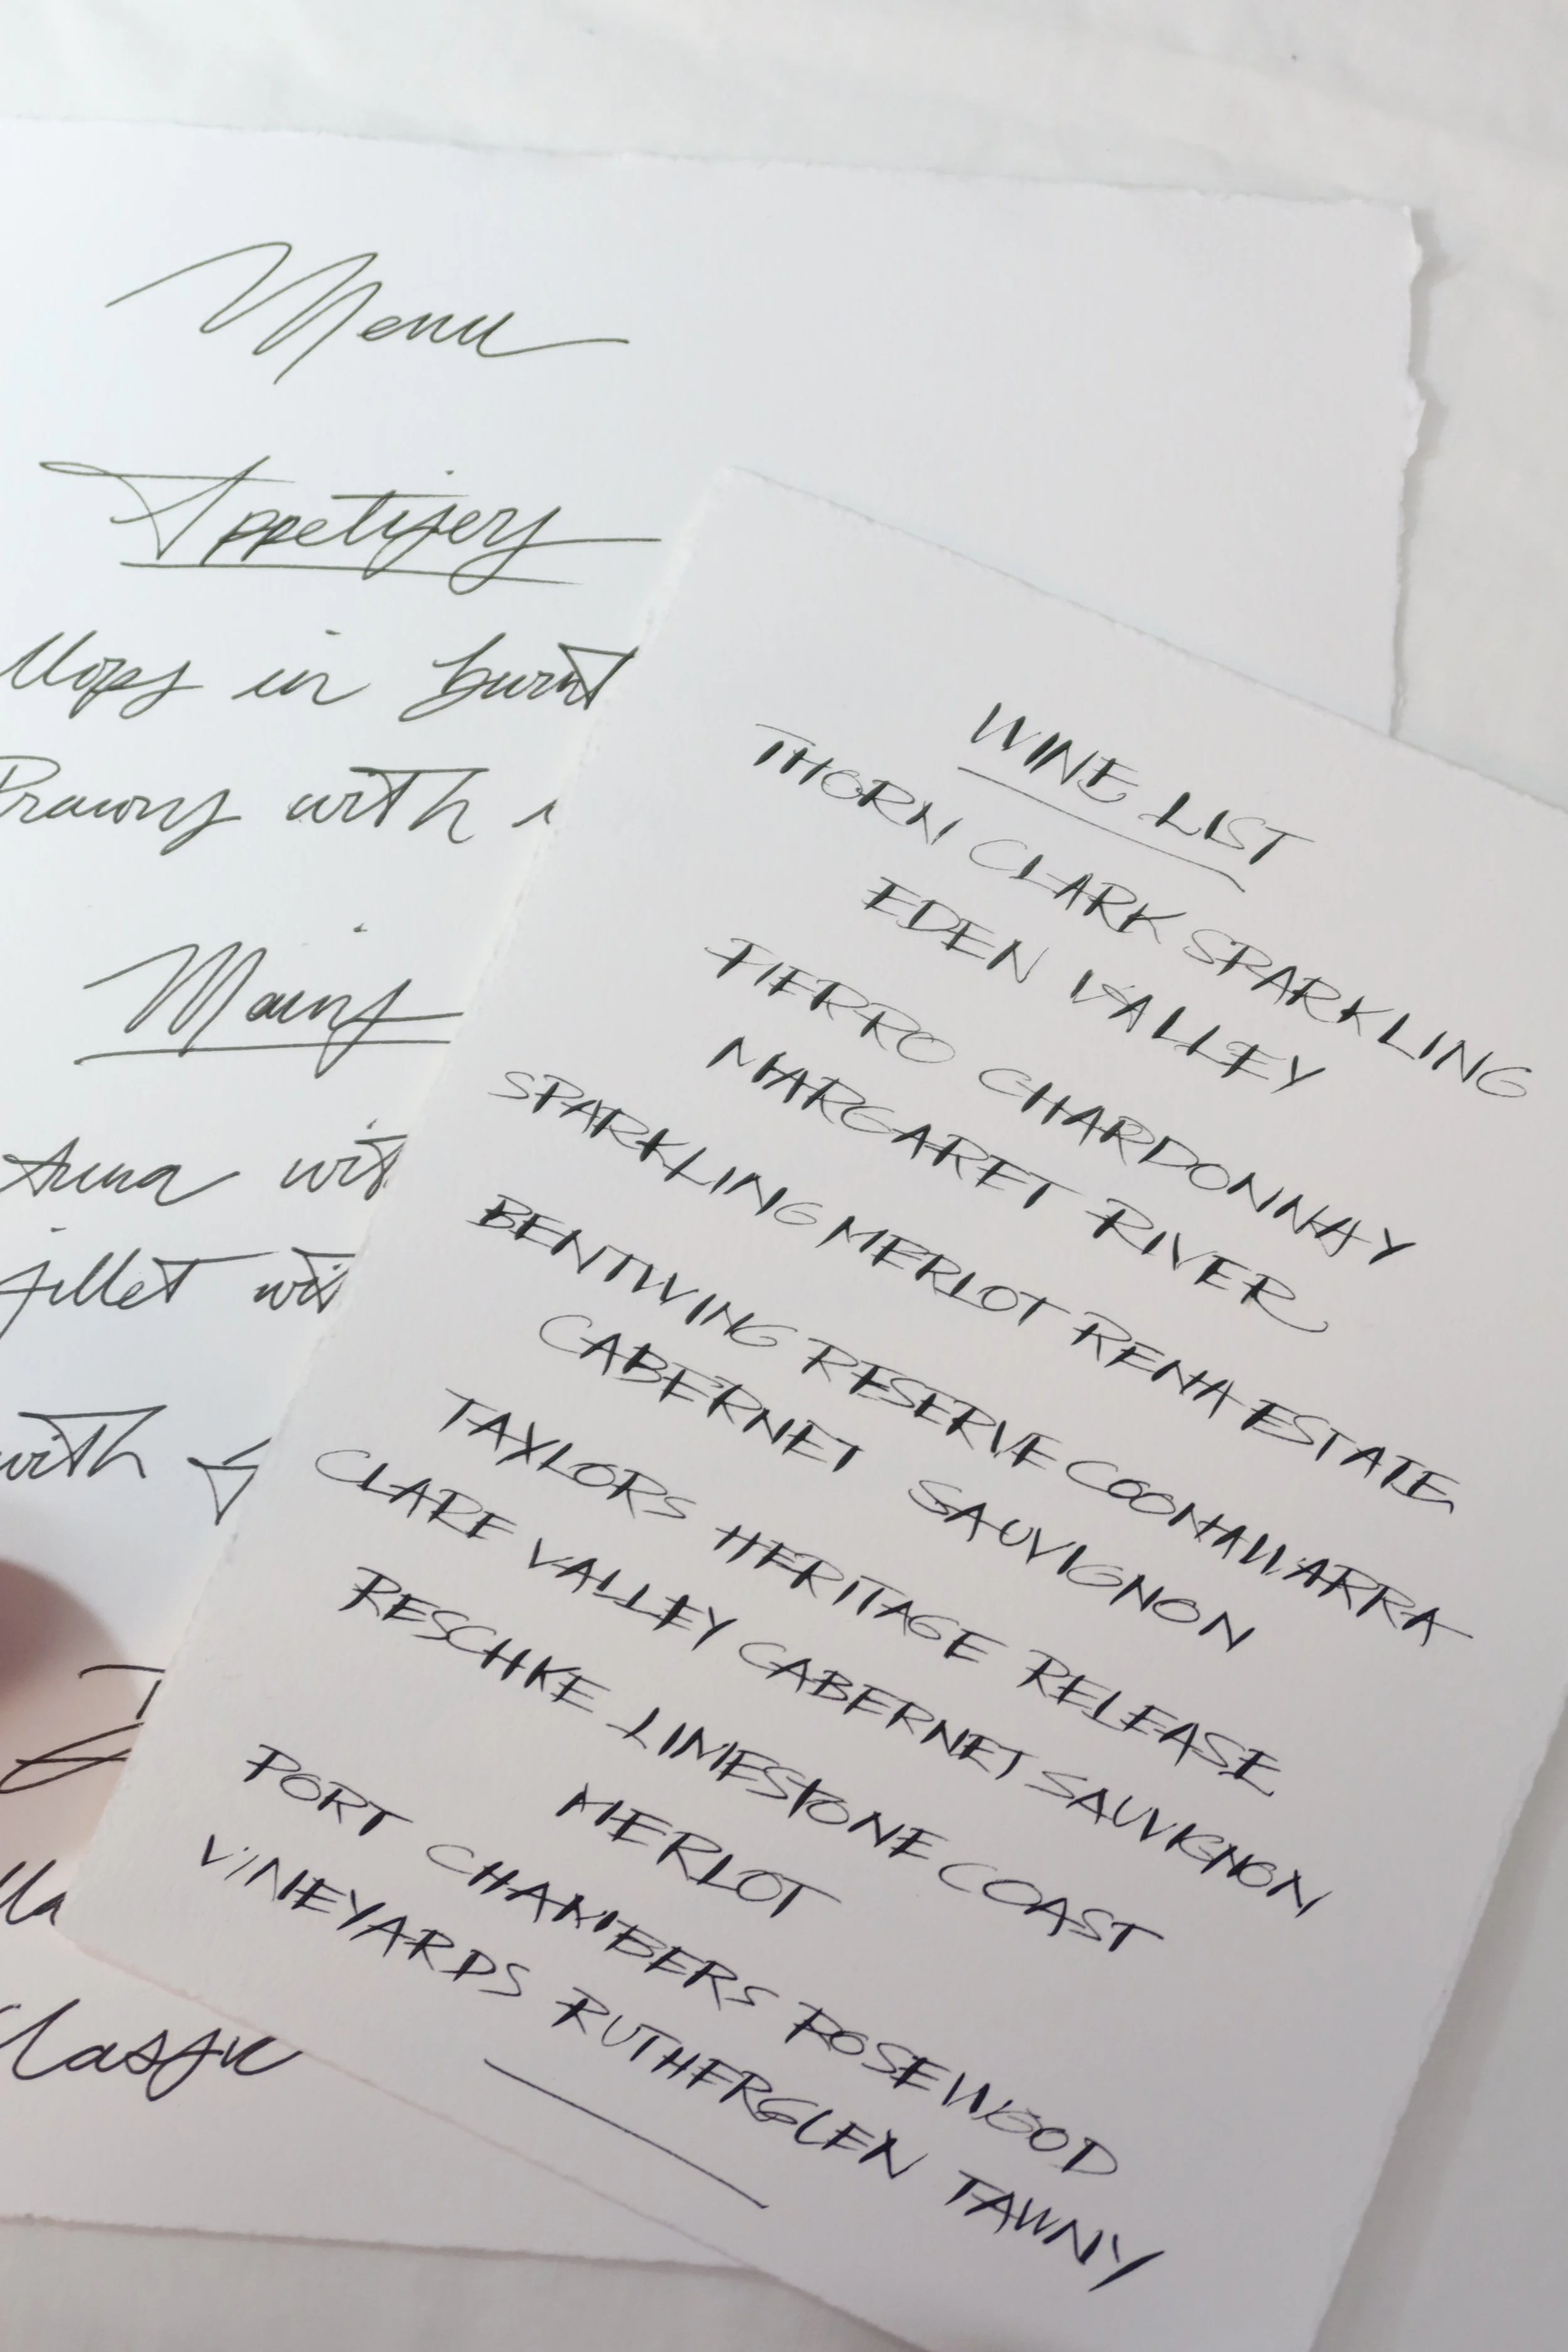 Menu
Appetizers
llops in burnt
Prawns with
Mains
with
fillet
with
lla
Classic
WINE LIST
THORN CLARK SPARKLING
EDEN VALLEY
PIERRO CHARDONNAY
MARGARET RIVER
SPARKLING MERLOT RENA ESTATE
BENTWING RESERVE COONAWARRA
CABERNET SAUVIGNON
TAYLORS HERITAGE RELEASE
CLARE VALLEY CABERNET SAUVIGNON
RESCHKE LIMESTONE COAST
MERLOT
PORT CHAMBERS ROSEWOOD
VINEYARDS RUTHERGLEN TAWNY